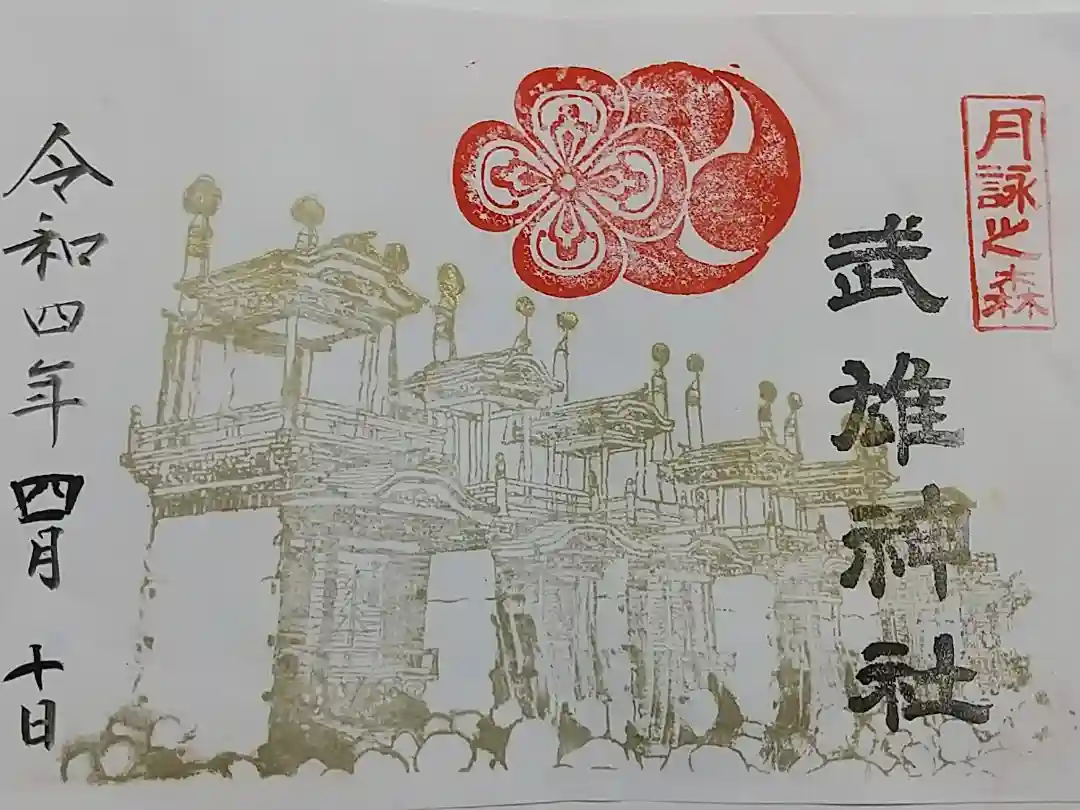 月詠之森
武雄神社
令和四年四月十日